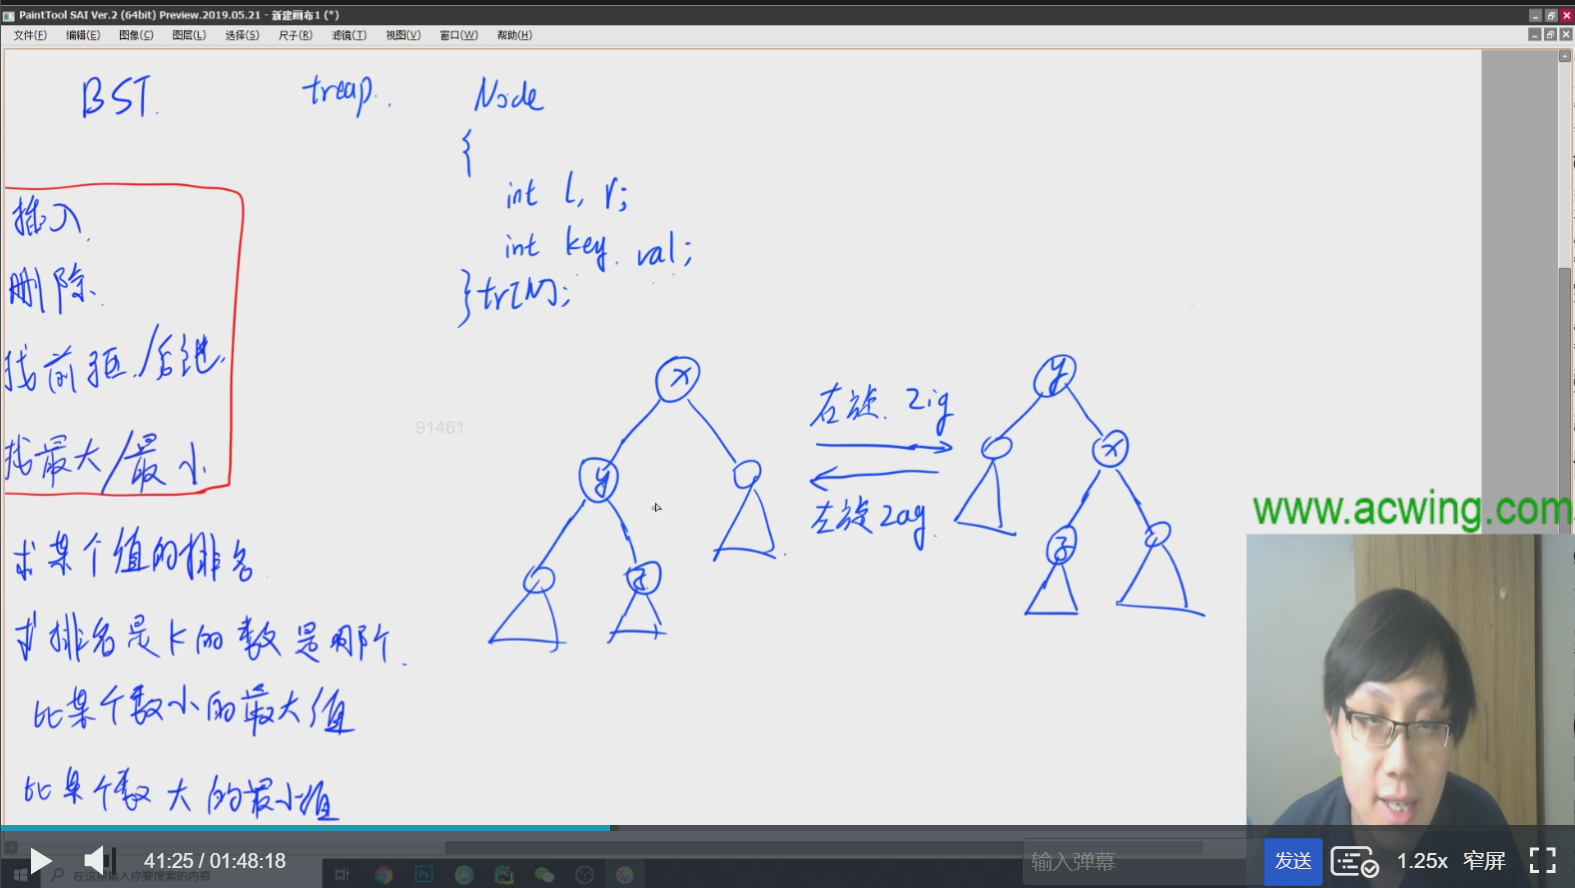 PaintTool SAI Ver.2 (64bit) Preview.2019.05.21 - 新建画布1 (*)
文件(F) 编辑(E) 图像(C) 图层(L) 选择(S) 尺子(R) 滤镜(T) 视图(V) 窗口(W) 帮助(H)
BST. treap. Node
{
int l, r;
int key, val;
}tr[N];
插入
删除
找前驱/后继
找最大/最小
求某个值的排名
求排名是k的数是哪个.
比某个数小的最大值
比某个数大的最小值
x
y
z
右旋. zig
左旋 zag.
y
x
z
91461
www.acwing.com
41:25 / 01:48:18 输入弹幕 发送 1.25x 窄屏
在这里输入你要搜索的内容